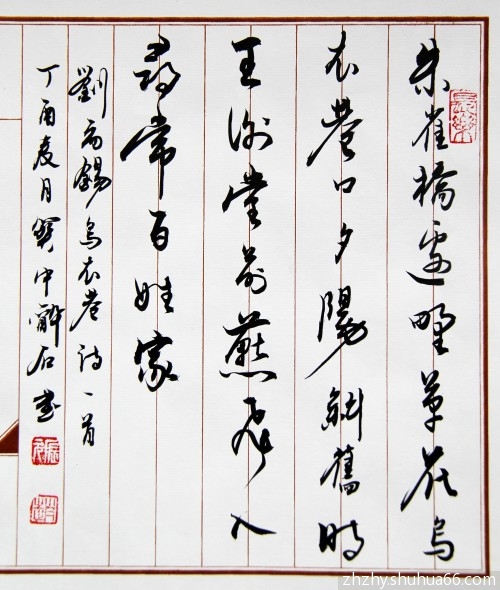 朱雀橋邊野草花烏
衣巷口夕陽斜舊時
王謝堂前燕飛入
尋常百姓家
劉禹錫烏衣巷詩一首
丁酉夏月中醉石書
zhzhyshuhua66.com